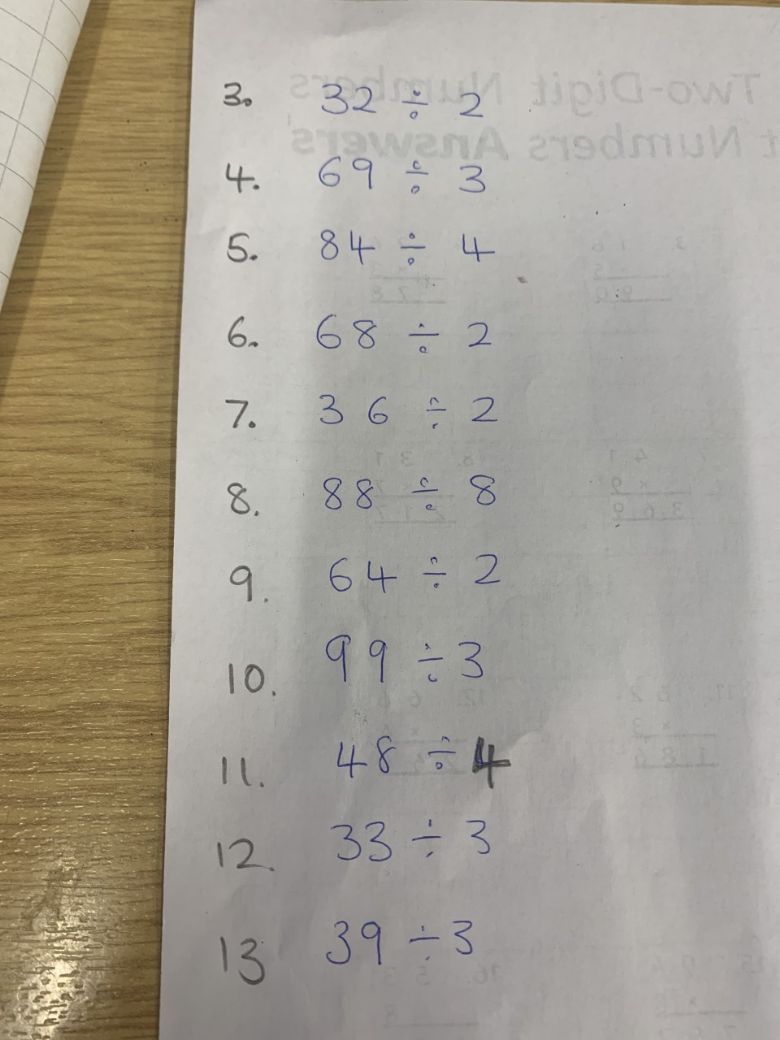 3. 32 ÷ 2
4. 69 ÷ 3
5. 84 ÷ 4
6. 68 ÷ 2
7. 36 ÷ 2
8. 88 ÷ 8
9. 64 ÷ 2
10. 99 ÷ 3
11. 48 ÷ 4
12. 33 ÷ 3
13 39 ÷ 3